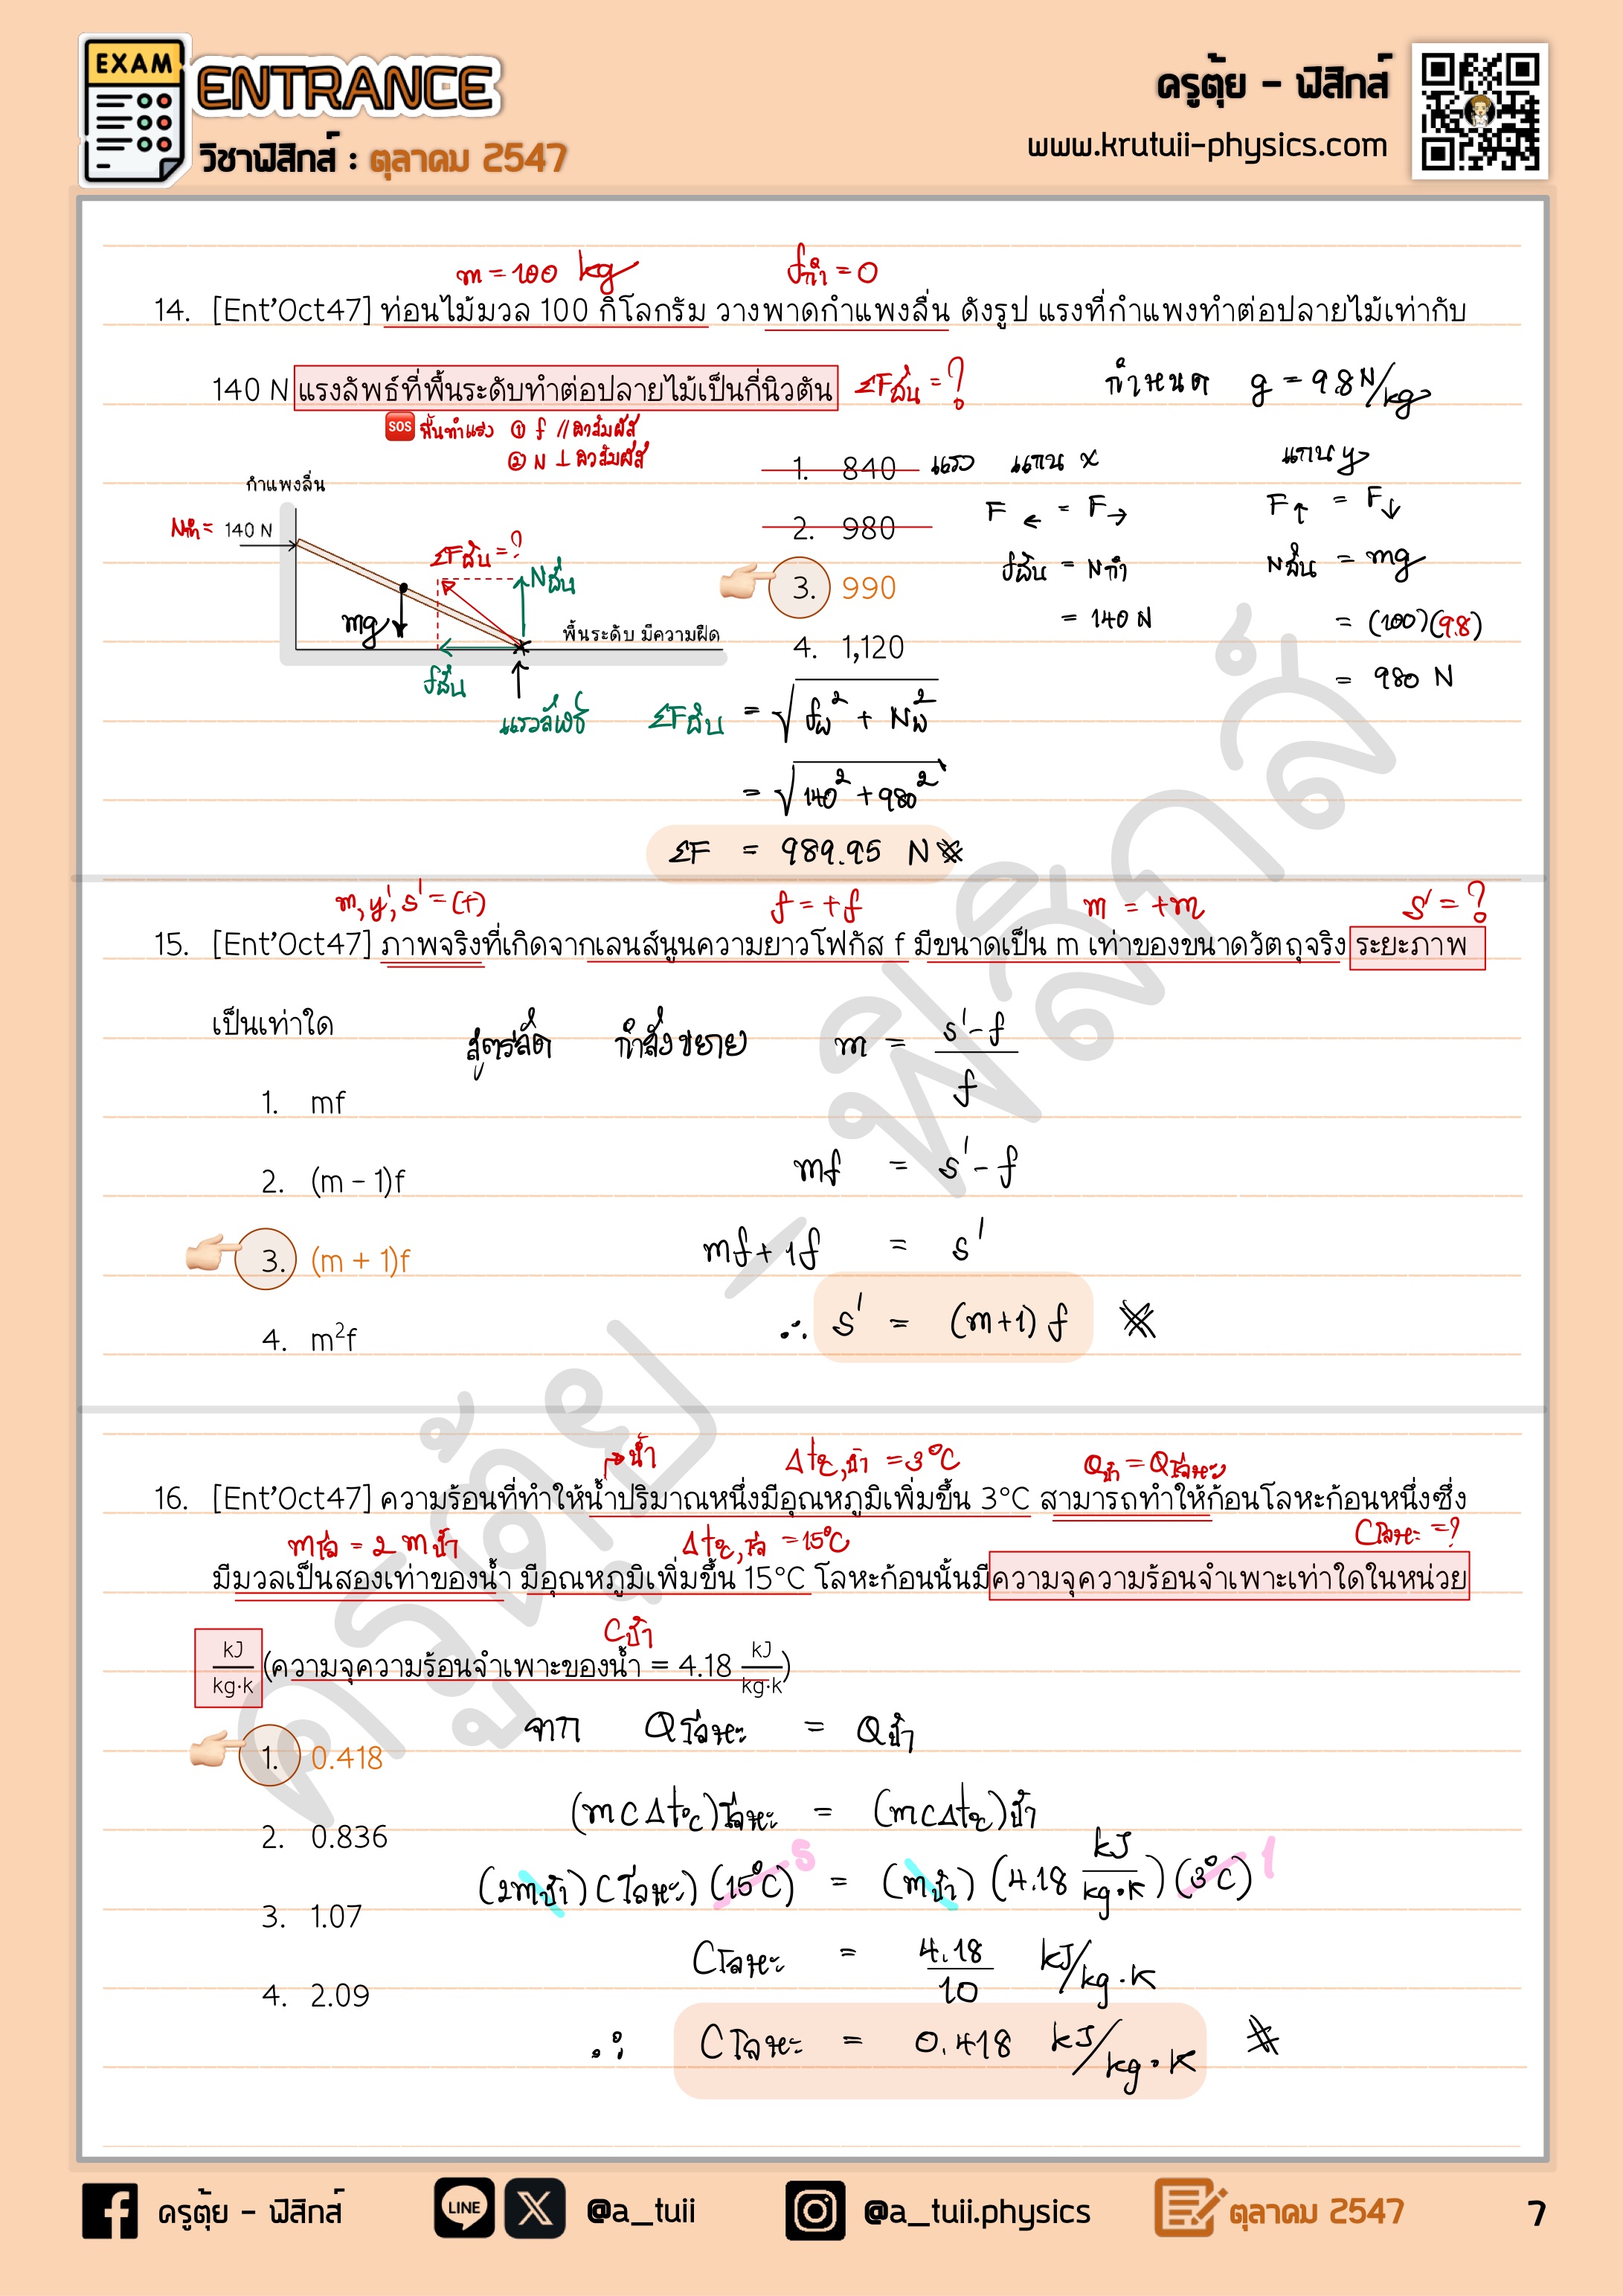 EXAM ENTRANCE
วิชาฟิสิกส์ : ตุลาคม 2547
ครูตุ้ย - ฟิสิกส์
www.krutuii-physics.com
m = 100 kg fกำ = 0
14. [Ent'Oct47] ท่อนไม้มวล 100 กิโลกรัม วางพาดกำแพงลื่น ดังรูป แรงที่กำแพงทำต่อปลายไม้เท่ากับ
140 N แรงลัพธ์ที่พื้นระดับทำต่อปลายไม้เป็นกี่นิวตัน ΣFพื้น = ? กำหนด g = 9.8 N/kg
SOS พื้นทำแรง ① f // ผิวสัมผัส
② N ⊥ ผิวสัมผัส
กำแพงลื่น
Nกำ = 140 N
ΣFพื้น = ?
Nพื้น
mg
พื้นระดับ มีความฝืด
fพื้น
แรงลัพธ์
1. 840
2. 980
3. 990
4. 1,120
แรง แกน x แกน y
F← = F→ F↑ = F↓
fพื้น = Nกำ Nพื้น = mg
= 140 N = (100)(9.8)
= 980 N
ΣFพื้น = √fพ² + Nพ²
= √140² + 980²
ΣF = 989.95 N
m, y', s' = (+) f = +f m = +m s' = ?
15. [Ent'Oct47] ภาพจริงที่เกิดจากเลนส์นูนความยาวโฟกัส f มีขนาดเป็น m เท่าของขนาดวัตถุจริง ระยะภาพ
เป็นเท่าใด
สูตรลัด กำลังขยาย m = s'-f / f
1. mf
mf = s' - f
2. (m - 1)f
mf + 1f = s'
3. (m + 1)f
∴ s' = (m+1) f
4. m²f
น้ำ Δt°C,น้ำ = 3°C Qน้ำ = Qโลหะ
16. [Ent'Oct47] ความร้อนที่ทำให้น้ำปริมาณหนึ่งมีอุณหภูมิเพิ่มขึ้น 3°C สามารถทำให้ก้อนโลหะก้อนหนึ่งซึ่ง
mโล = 2 mน้ำ Δt°C,โล = 15°C Cโลหะ = ?
มีมวลเป็นสองเท่าของน้ำ มีอุณหภูมิเพิ่มขึ้น 15°C โลหะก้อนนั้นมีความจุความร้อนจำเพาะเท่าใดในหน่วย
Cน้ำ
kJ/kg·k (ความจุความร้อนจำเพาะของน้ำ = 4.18 kJ/kg·k)
จาก Qโลหะ = Qน้ำ
1. 0.418
(mcΔt°C)โลหะ = (mcΔt°C)น้ำ
2. 0.836
(2mน้ำ)(Cโลหะ)(15°C) 5 = (mน้ำ)(4.18 kJ/kg·K)(3°C) 1
3. 1.07
Cโลหะ = 4.18/10 kJ/kg·K
4. 2.09
∴ Cโลหะ = 0.418 kJ/kg·K
ครูตุ้ย - ฟิสิกส์
ครูตุ้ย - ฟิสิกส์ LINE X @a_tuii @a_tuii.physics ตุลาคม 2547 7